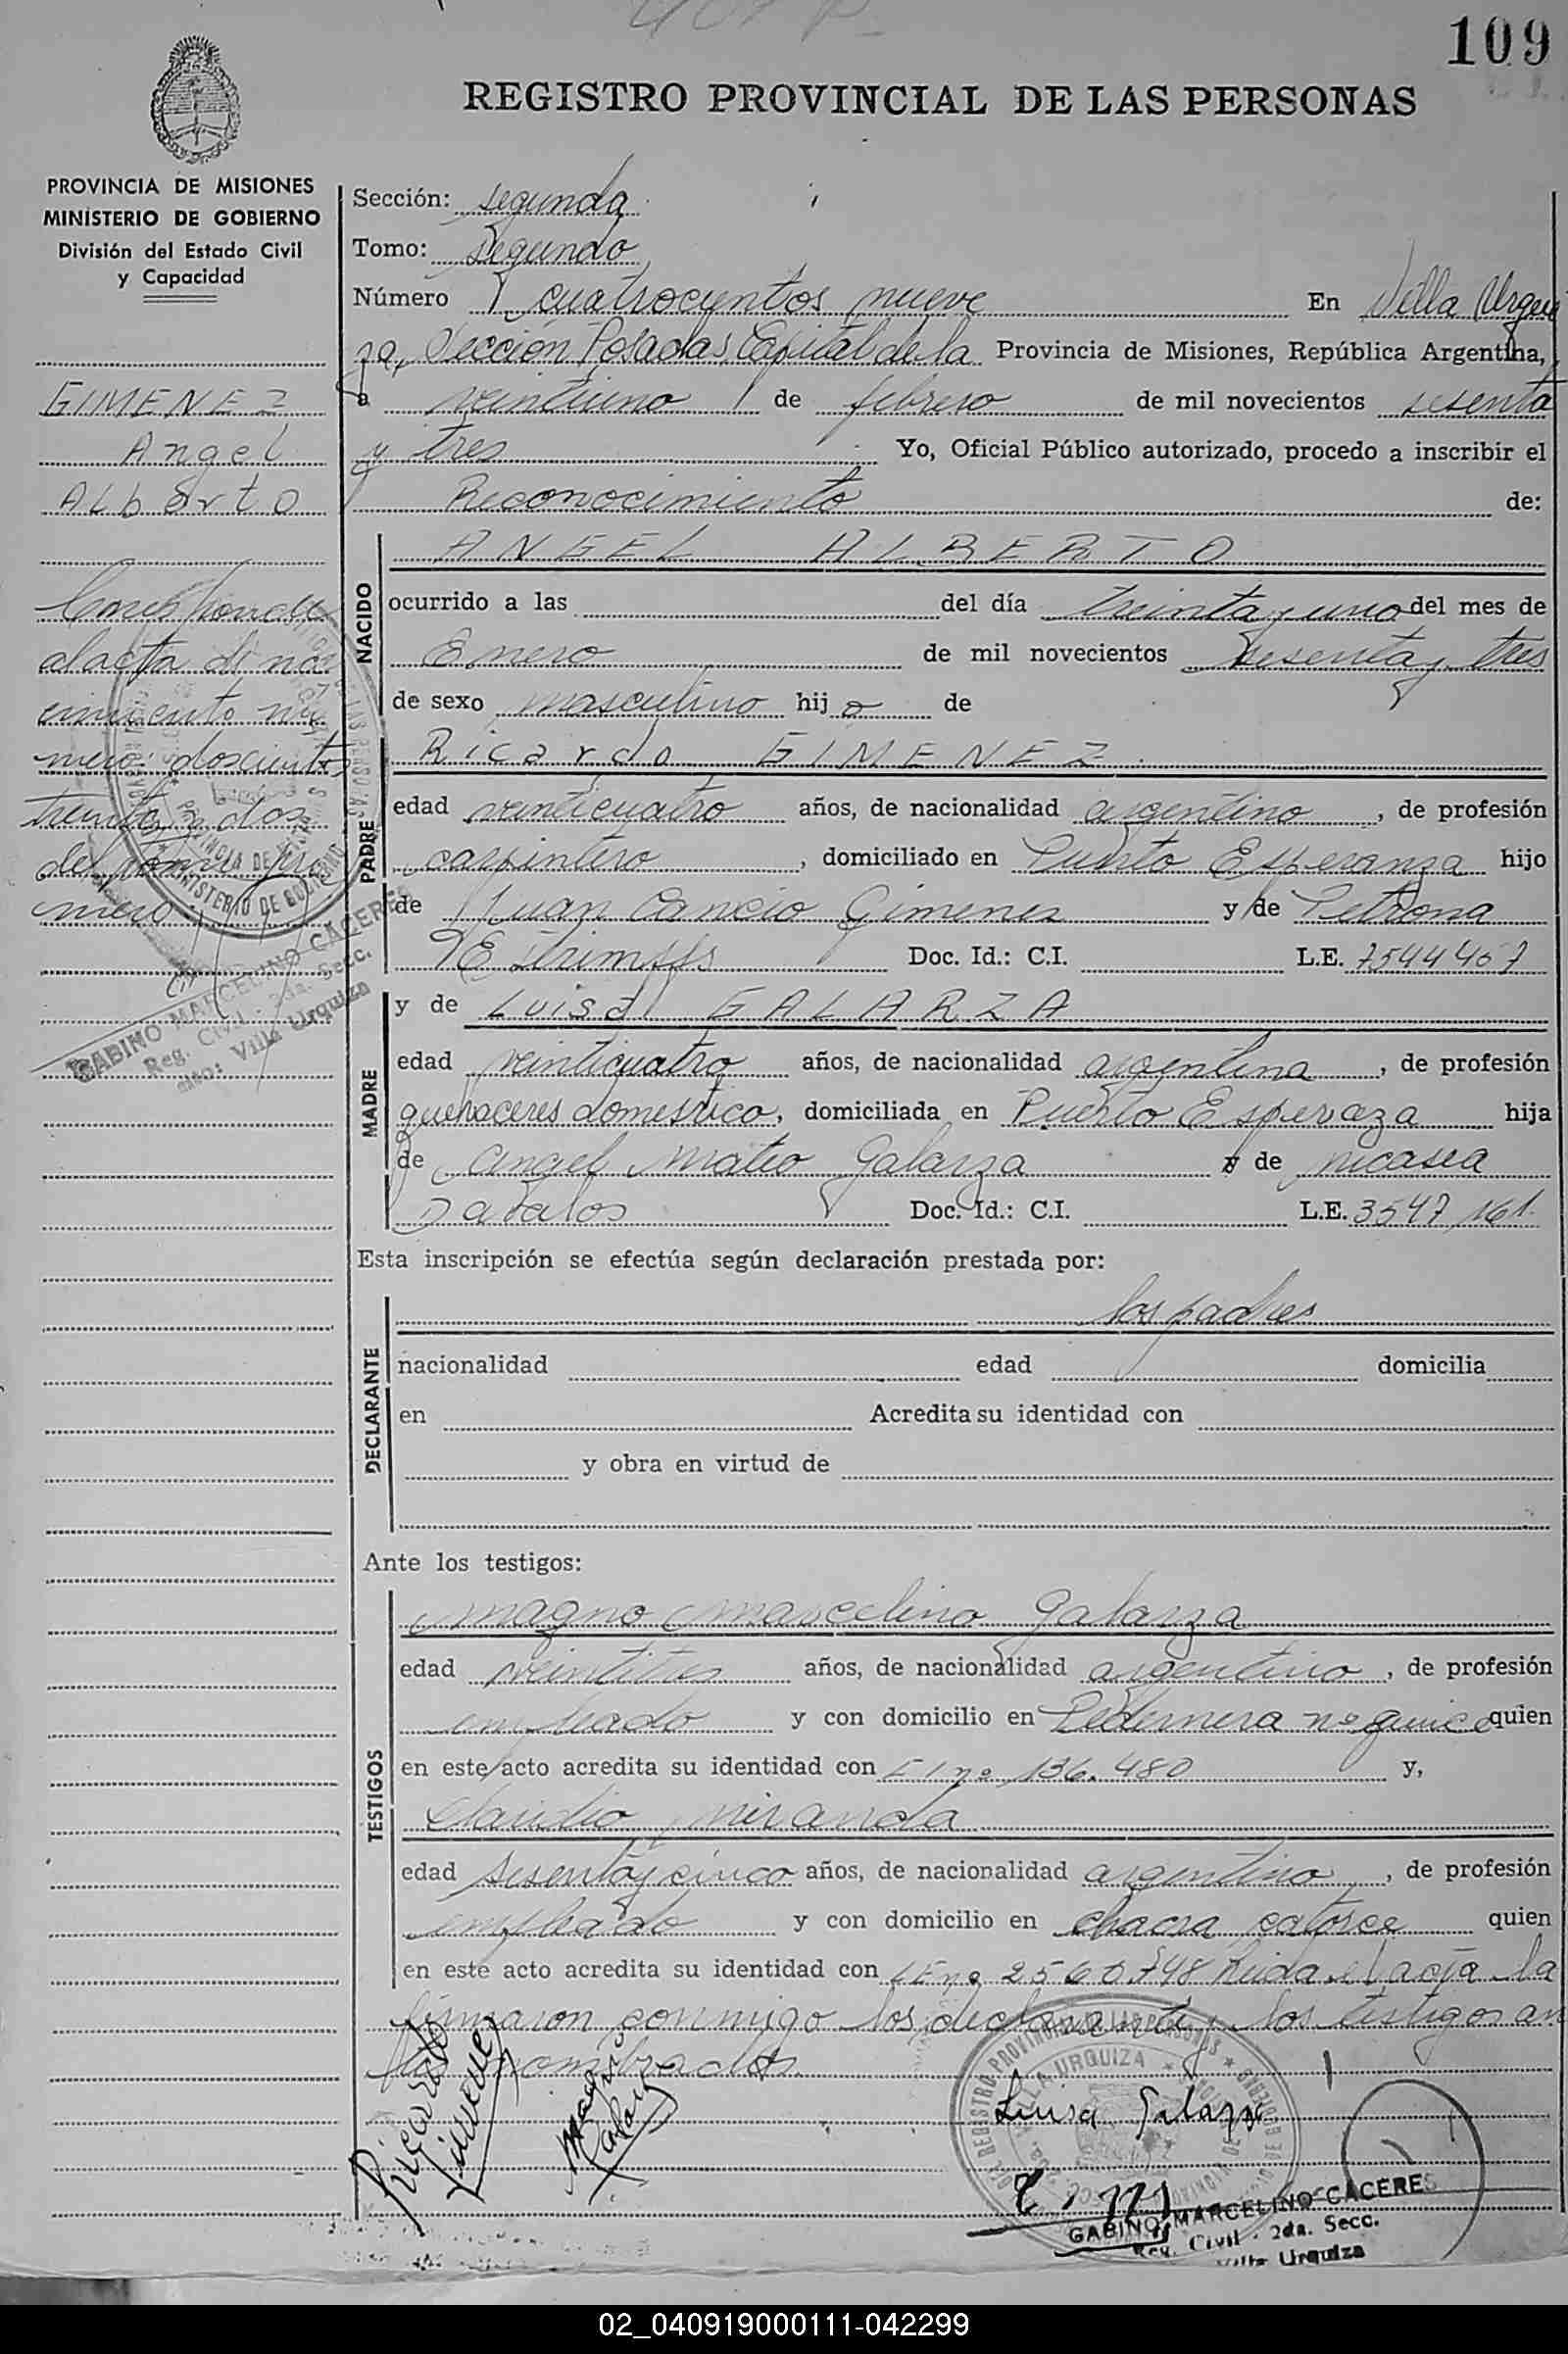 109
REGISTRO PROVINCIAL DE LAS PERSONAS
PROVINCIA DE MISIONES
MINISTERIO DE GOBIERNO
División del Estado Civil
y Capacidad
GIMENEZ
Angel
ALberto
Corresponde
al acta de na
cimiento nú
mero doscientos
treinta y dos
del tomo pri
mero
GABINO MARCELINO CACERES
Reg. Civil - 2da. Secc.
Villa Urquiza
Sección: segunda
Tomo: segundo
Número cuatrocientos nueve En Villa Urqui
za, Sección Posadas, Capital de la Provincia de Misiones, República Argentina,
a veintiuno de febrero de mil novecientos sesenta
y tres Yo, Oficial Público autorizado, procedo a inscribir el
Reconocimiento de:
NACIDO
ANGEL ALBERTO
ocurrido a las del día treinta y uno del mes de
Enero de mil novecientos sesenta y tres
de sexo masculino hijo de
PADRE
Ricardo GIMENEZ
edad veinticuatro años, de nacionalidad argentino, de profesión
carpintero, domiciliado en Puerto Esperanza hijo
de Juan Cancio Gimenez y de Petrona
Doc. Id.: C.I. L.E. 7544467
MADRE
y de Luisa GALARZA
edad veinticuatro años, de nacionalidad argentina, de profesión
quehaceres domestico, domiciliada en Puerto Esperaza hija
de Angel Mateo Galarza y de nicasea
Doc. Id.: C.I. L.E. 3547161
Esta inscripción se efectúa según declaración prestada por:
DECLARANTE
los padres
nacionalidad edad domicilia
en Acredita su identidad con
y obra en virtud de
Ante los testigos:
TESTIGOS
Magno Marcelino Galarza
edad veintitres años, de nacionalidad argentino, de profesión
empleado y con domicilio en Pedernera nº quince quien
en este acto acredita su identidad con CI nº 136.480 y,
Claudio Miranda
edad sesentay cinco años, de nacionalidad argentino, de profesión
empleado y con domicilio en chacra catorce quien
en este acto acredita su identidad con LE nº 2560748 Leida el acta la
firmaron conmigo los declarante y los testigos an
tes nombrados.
Ricardo Gimenez
Luisa Galarza
GABINO MARCELINO CACERES
Reg. Civil - 2da. Secc.
Villa Urquiza
02_040919000111-042299